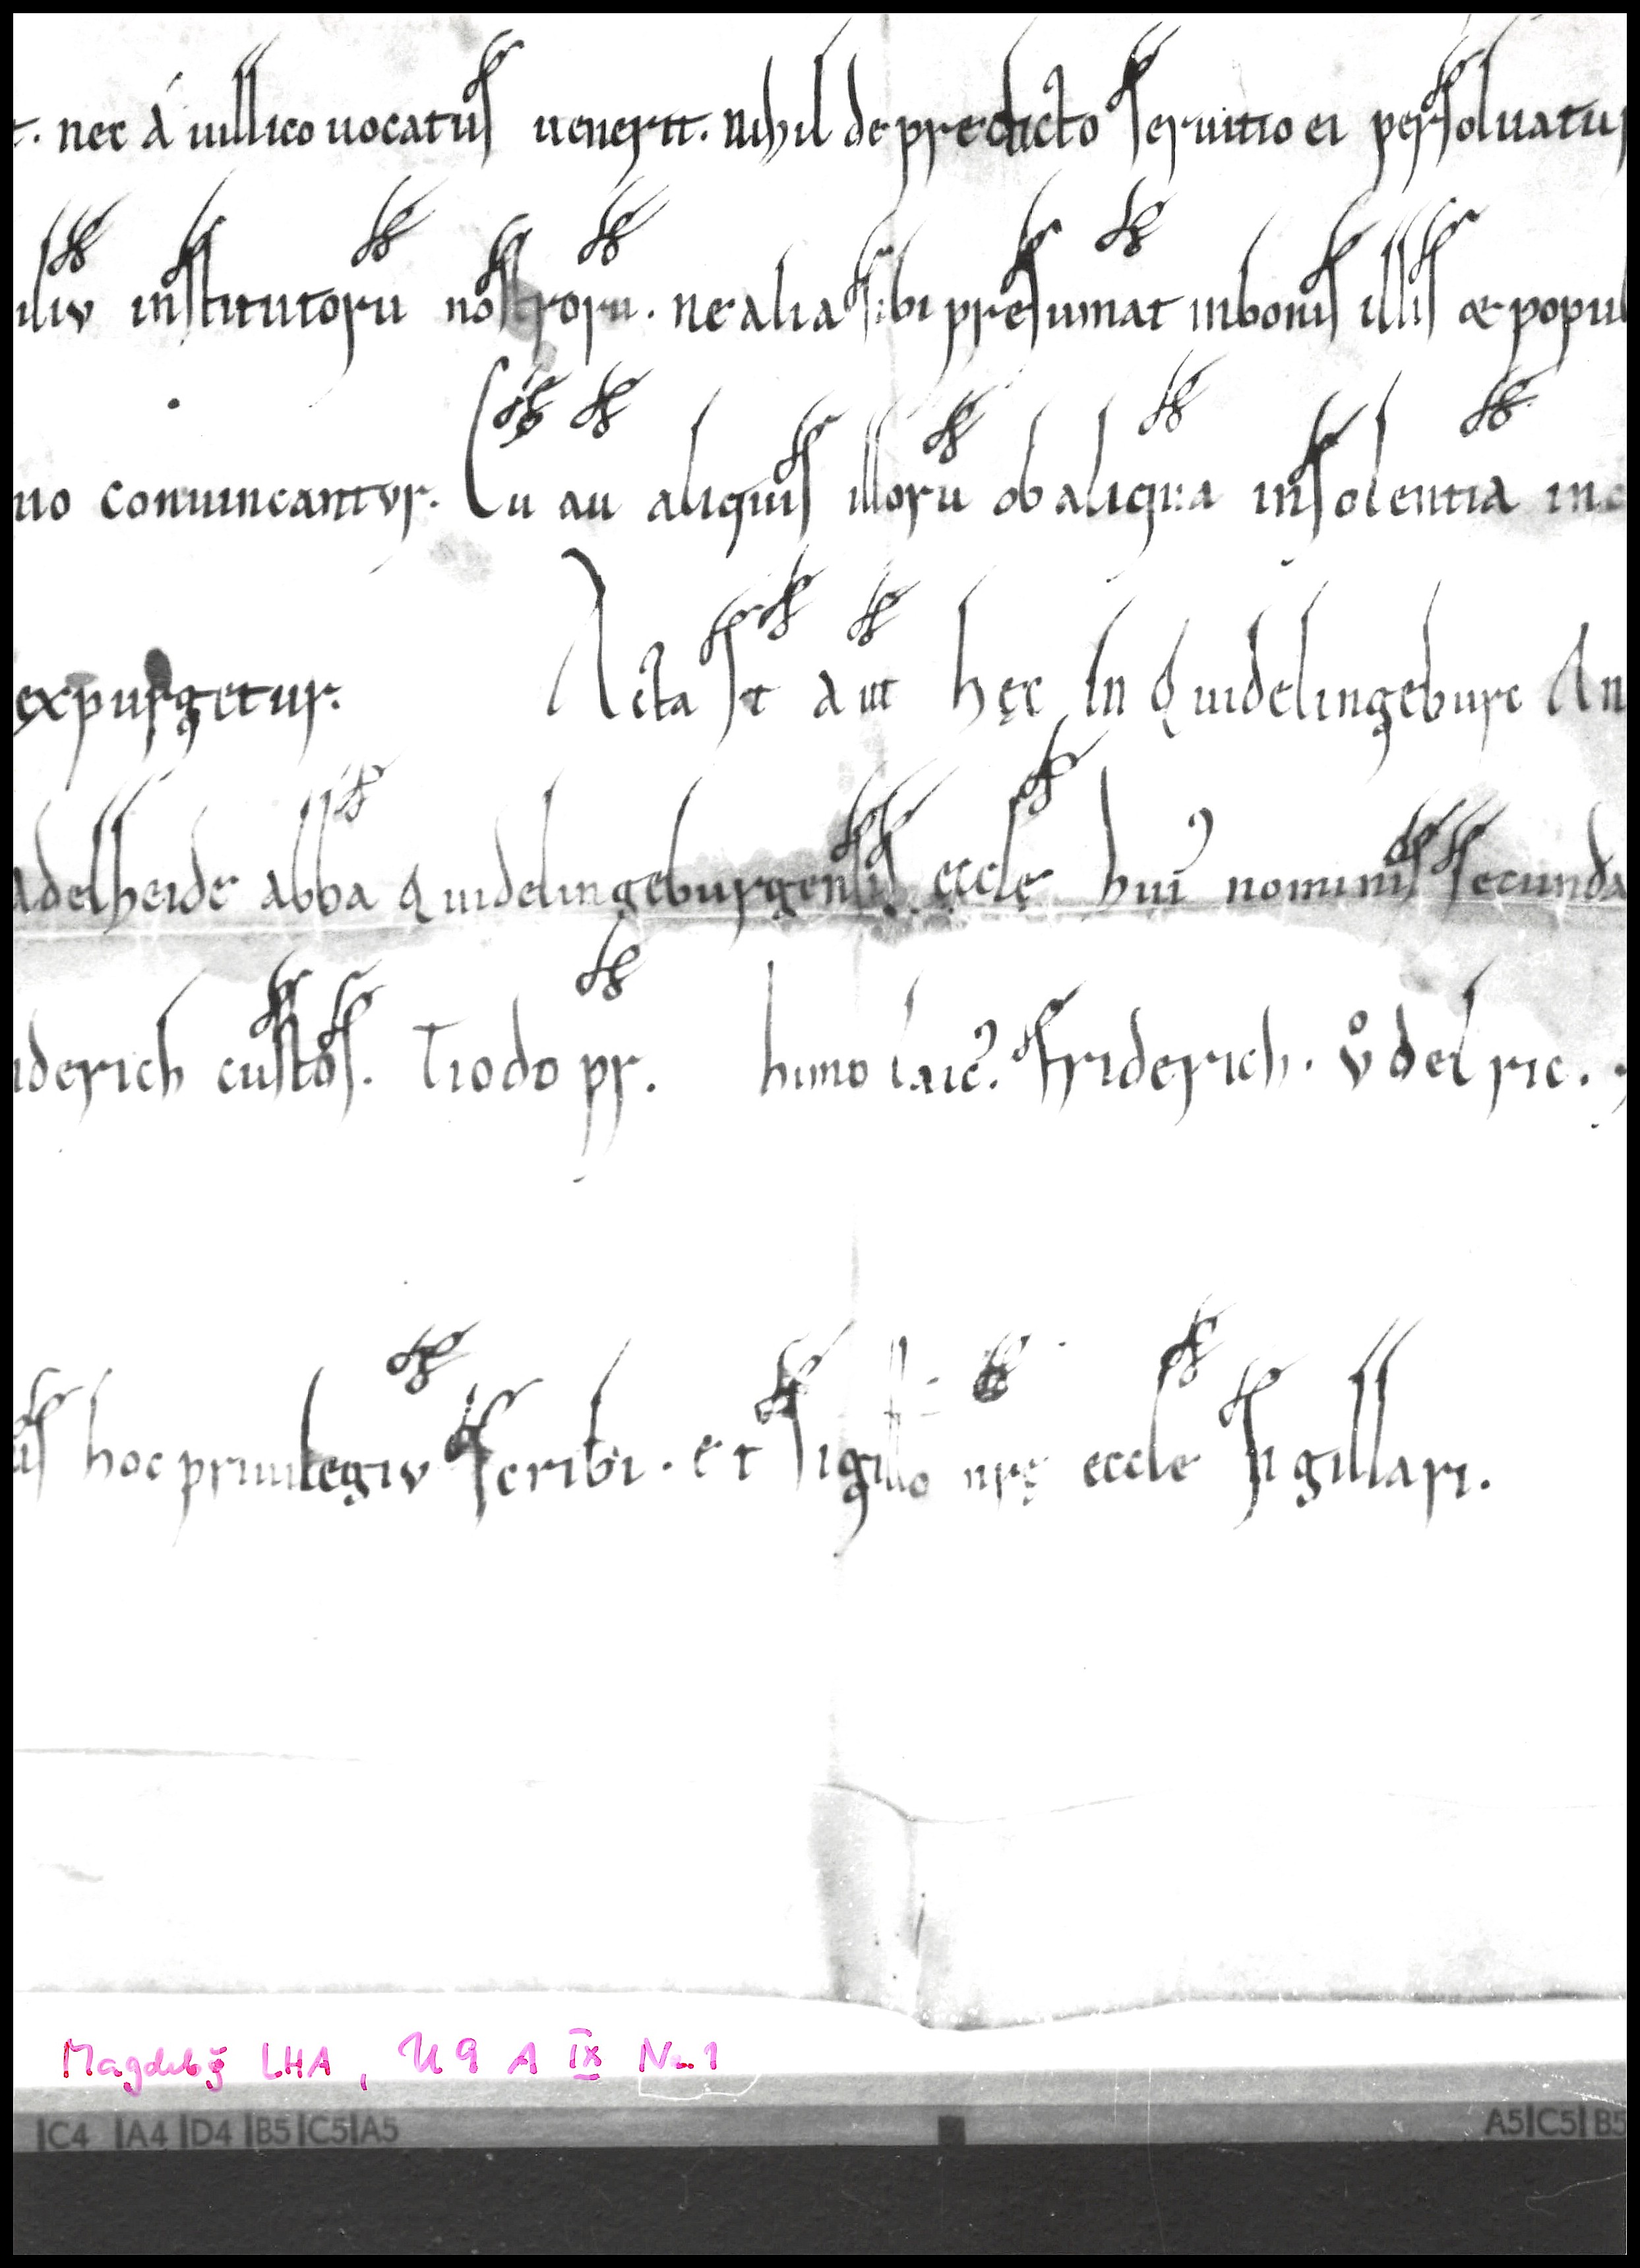 t. nec á uillico uocatus uenerit. nihil de predicto seruitio ei persoluatur
iliu institutoru nostroru. ne alia sibi presumat in bonis illis & popul
uo conuincantur. Cu au aliquis illoru ob aliqua insolentia inc
expurgetur. Acta st aut hęc In Quidelingeburc An
adelheide abba Quidelingeburgensis ęcclę hui᾽ nominis secunda
iderich custos. Tiodo pr. huno laic᾽. Friderich. Vͦdelric.
us hoc priuilegiu scribi. et sigillo nrę eccle sigillari.
Magdebg LHA, U 9 A IX Nr. 1
|C4 |A4 |D4 |B5 |C5 |A5 A5| C5| B5